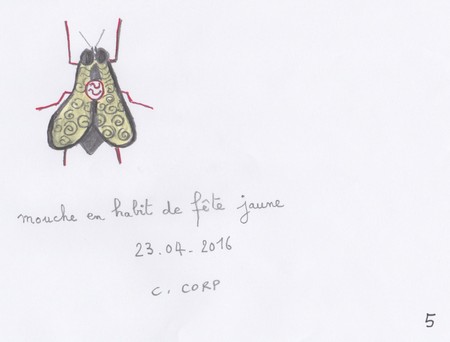 mouche en habit de fête jaune
23.04-2016
C. CORP
5